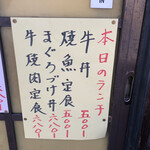 本日のランチ
牛丼 五〇〇
焼魚定食 五五〇
まぐろづけ丼 六八〇
牛焼肉定食 六八〇